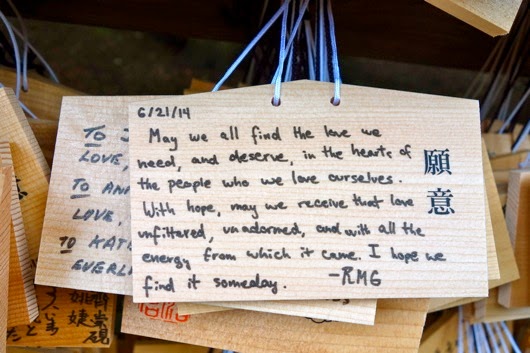 6/21/14
May we all find the love we
need, and deserve, in the hearts of
the people who we love ourselves.
With hope, may we receive that love
unfiltered, unadorned, and with all the
energy from which it came. I hope we
find it someday. -RMG
願意
TO
LOVE,
TO ANN
LOVE,
TO KATE
EVERL